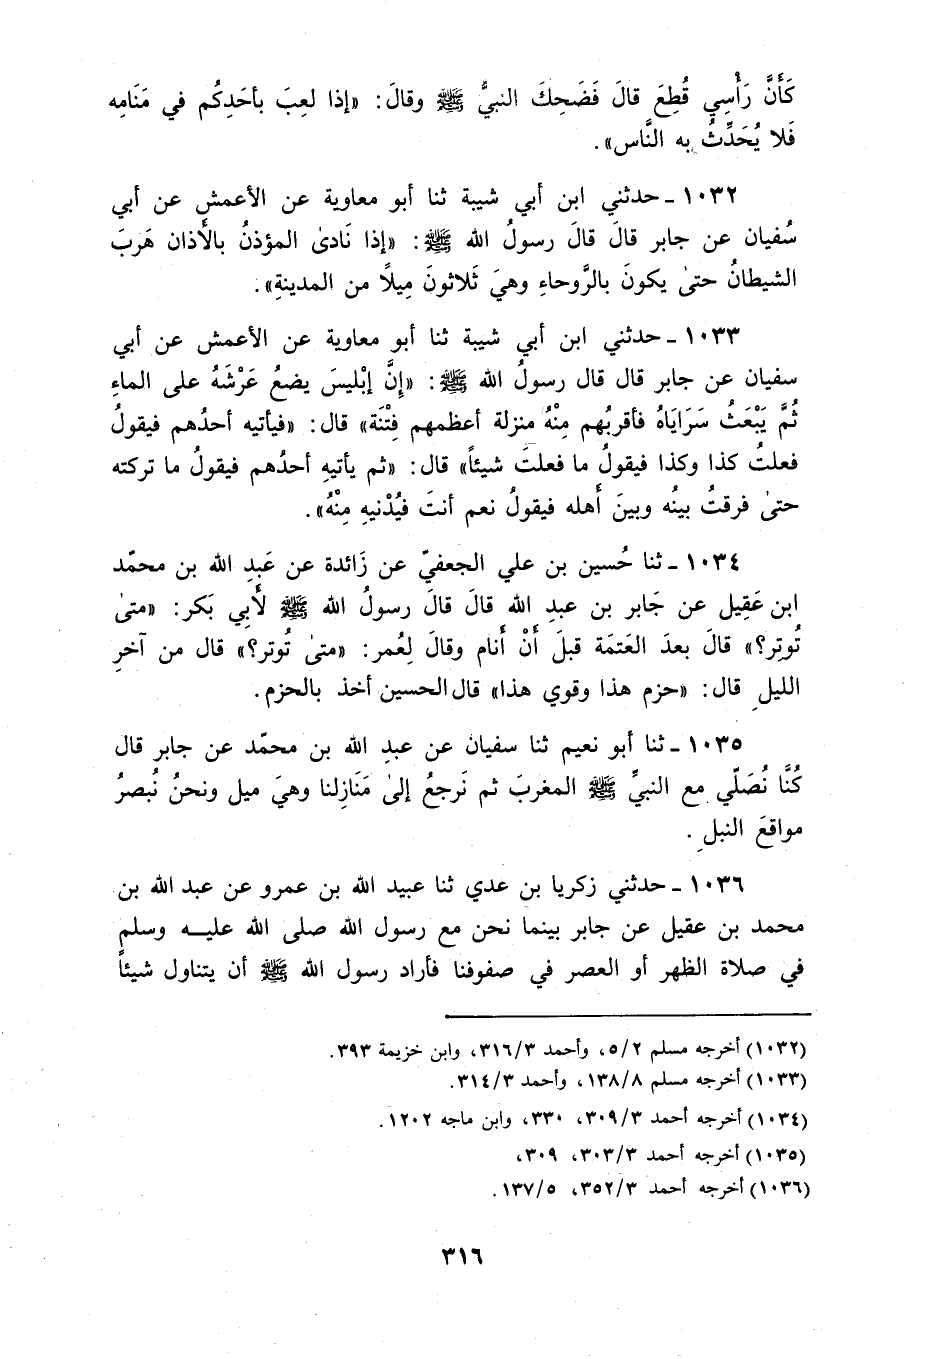 كَأَنَّ رَأْسِي قُطِعَ قالَ فَضَحِكَ النبيُّ ﷺ وقالَ: «إذا لعِبَ بأحَدِكُم في مَنَامِه
فَلا يُحَدِّثُ به النَّاس».
١٠٣٢ ـ حدثني ابن أبي شيبة ثنا أبو معاوية عن الأعمش عن أبي
سُفيان عن جابر قالَ قالَ رسولُ الله ﷺ: «إذا نَادىٰ المؤذنُ بالأَذان هَربَ
الشيطانُ حتىٰ يكونَ بالرَّوحاءِ وهيَ ثَلاثونَ مِيلًا من المدينةِ».
١٠٣٣ ـ حدثني ابن أبي شيبة ثنا أبو معاوية عن الأعمش عن أبي
سفيان عن جابر قال قال رسولُ الله ﷺ: «إِنَّ إبْليسَ يضعُ عَرْشَهُ على الماءِ
ثُمَّ يَبْعَثُ سَرَايَاهُ فأقربُهم مِنْهُ منزلة أعظمهم فِتْنَة» قال: «فيأتيه أحدُهم فيقولُ
فعلتُ كذا وكذا فيقولُ ما فعلتَ شيئاً» قال: «ثم يأتيهِ أحدُهم فيقولُ ما تركته
حتىٰ فرقتُ بينُه وبينَ أَهله فيقولُ نعم أنتَ فيُدْنيهِ مِنْهُ».
١٠٣٤ ـ ثنا حُسين بن علي الجعفيّ عن زَائدة عن عَبدِ الله بن محمّد
ابن عَقِيل عن جَابر بن عبدِ الله قالَ قالَ رسولُ الله ﷺ لأَبي بَكر: «متىٰ
تُوتِر؟» قالَ بعدَ العَتمَة قبلَ أَنْ أَنام وقالَ لِعُمر: «متىٰ تُوتر؟» قال من آخرِ
الليلِ قال: «حزم هذا وقوي هذا» قال الحسين أخذ بالحزم.
١٠٣٥ ـ ثنا أبو نعيم ثنا سفيان عن عبدِ الله بن محمّد عن جابر قال
كُنَّا نُصَلّي مع النبيِّ ﷺ المغربَ ثم نَرجعُ إلىٰ مَنَازِلنا وهيَ ميل ونحنُ نُبصرُ
مواقعَ النبلِ.
١٠٣٦ ـ حدثني زكريا بن عدي ثنا عبيد الله بن عمرو عن عبد الله بن
محمد بن عقيل عن جابر بينما نحن مع رسول الله صلى الله عليه وسلم
في صلاة الظهر أو العصر في صفوفنا فأراد رسول الله ﷺ أن يتناول شيئاً
(١٠٣٢) أخرجه مسلم ٥/٢، وأحمد ٣١٦/٣، وابن خزيمة ٣٩٣.
(١٠٣٣) أخرجه مسلم ١٣٨/٨، وأحمد ٣١٤/٣.
(١٠٣٤) أخرجه أحمد ٣٠٩/٣، ٣٣٠، وابن ماجه ١٢٠٢.
(١٠٣٥) أخرجه أحمد ٣٠٣/٣، ٣٠٩،
(١٠٣٦) أخرجه أحمد ٣٥٢/٣، ١٣٧/٥.
٣١٦